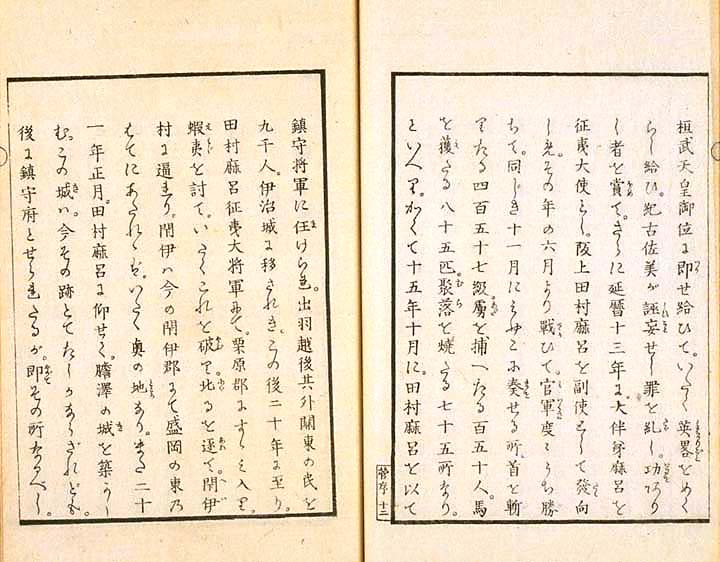 桓武天皇御位に即せ給ひて。いたく英畧をめぐ
らし給ひ。紀古佐美が誣妄せし罪を糺し。功ある
し者を賞て。さらに延暦十三年に。大伴弟麻呂を
征夷大使とし。阪上田村麻呂を副使として發向
しき。その年の六月より戰ひて。官軍度々うち勝
ちて。同じき十一月にみやこに奏せる所。首を斬
りたる四百五十七級。虜を捕へたる百五十人。馬
を獲たる八十五匹。聚落を燒たる七十五所なり
といへり。かくて十五年十月に。田村麻呂を以て
菅序 十三
鎮守将軍に任けらる。出羽越後其外關東の民を
九千人。伊治城に移されき。この後二十年に至り。
田村麻呂征夷大将軍にて。栗原郡にすゝみ入り。
蝦夷を討て。いたくこれを破り。北るを逐て。閇伊
村に逼れり。閇伊ハ今の閇伊郡にて盛岡の東乃
はてにあたれゝば。いたく奥の地なり。また二十
一年正月。田村麻呂に仰せて。膽澤の城を築かし
む。この城ハ。今その跡とてたしかならざれども。
後に鎮守府とせられたるが。即その所なるべし。